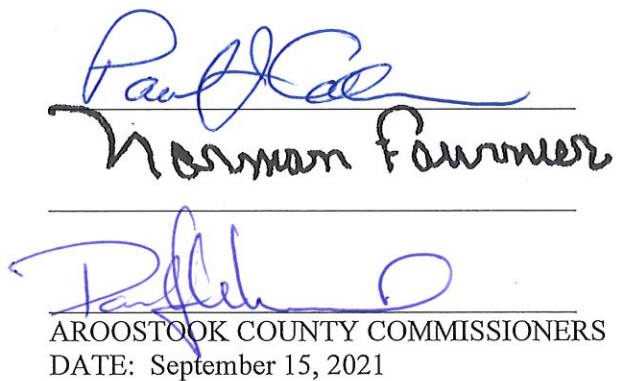 Paul J
Norman Fournier
AROOSTOOK COUNTY COMMISSIONERS
DATE: September 15, 2021